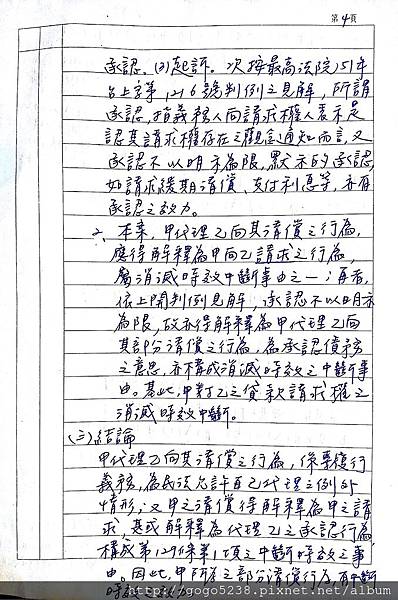 第4頁
承認、(3)起訴。次按最高法院51年
台上字第1216號判例之見解,所謂
承認,指義務人向請求權人表示是
認其請求權存在之觀念通知而言,又
承認不以明示為限,默示的承認,
如請求緩期清償、支付利息等,亦有
承認之效力。
2、本案,甲代理乙向其清償之行為,
應得解釋為甲向乙請求之行為,
屬消滅時效中斷事由之一;再者,
依上開判例見解,承認不以明示
為限,故亦得解釋為甲代理乙向
其部分清償之行為,為承認債務
之意思,亦構成消滅時效之中斷事
由。基此,甲對乙之貸款請求權之
消滅時效中斷。
(三)結論
甲代理乙向其清償之行為,係專履行
義務,為民法允許自己代理之例外
情形;又甲之清償得解釋為甲之請
求,甚或解釋為代理乙之承認行為,
構成第129條第1項之中斷時效之事
由。因此,甲所為之部分清償行為,有中斷
時效之效力
http://gogo5238.pixnet.net/album